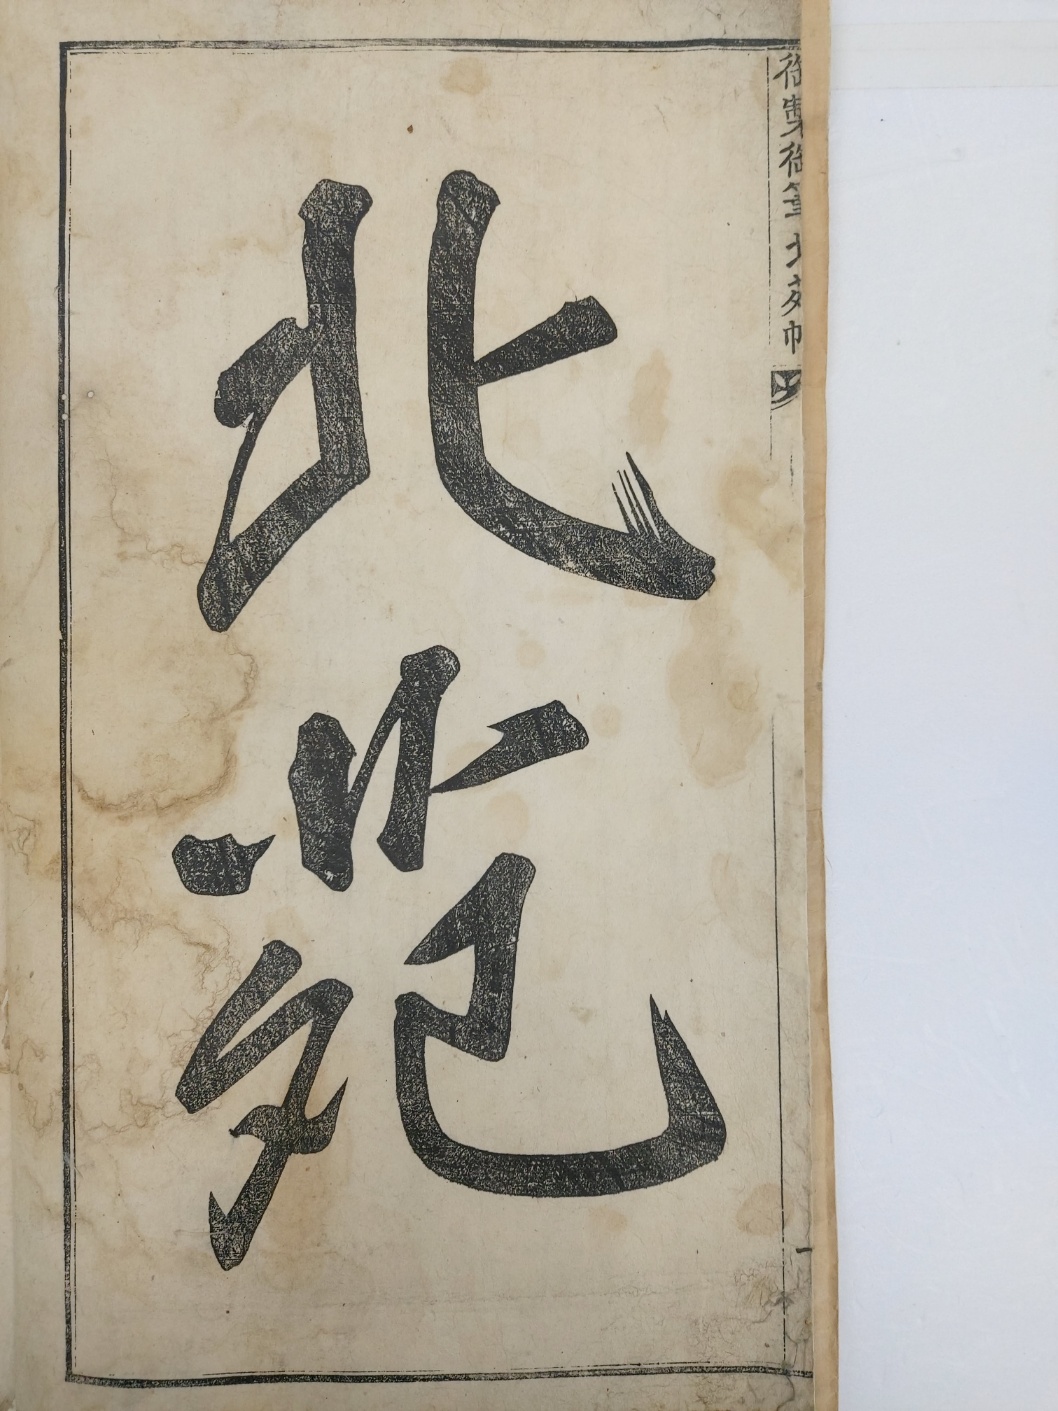 御製御筆北苑帖
北苑
一